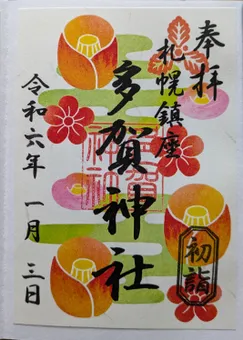 奉拝
札幌鎮座
多賀神社
令和六年 一月 三日
初詣